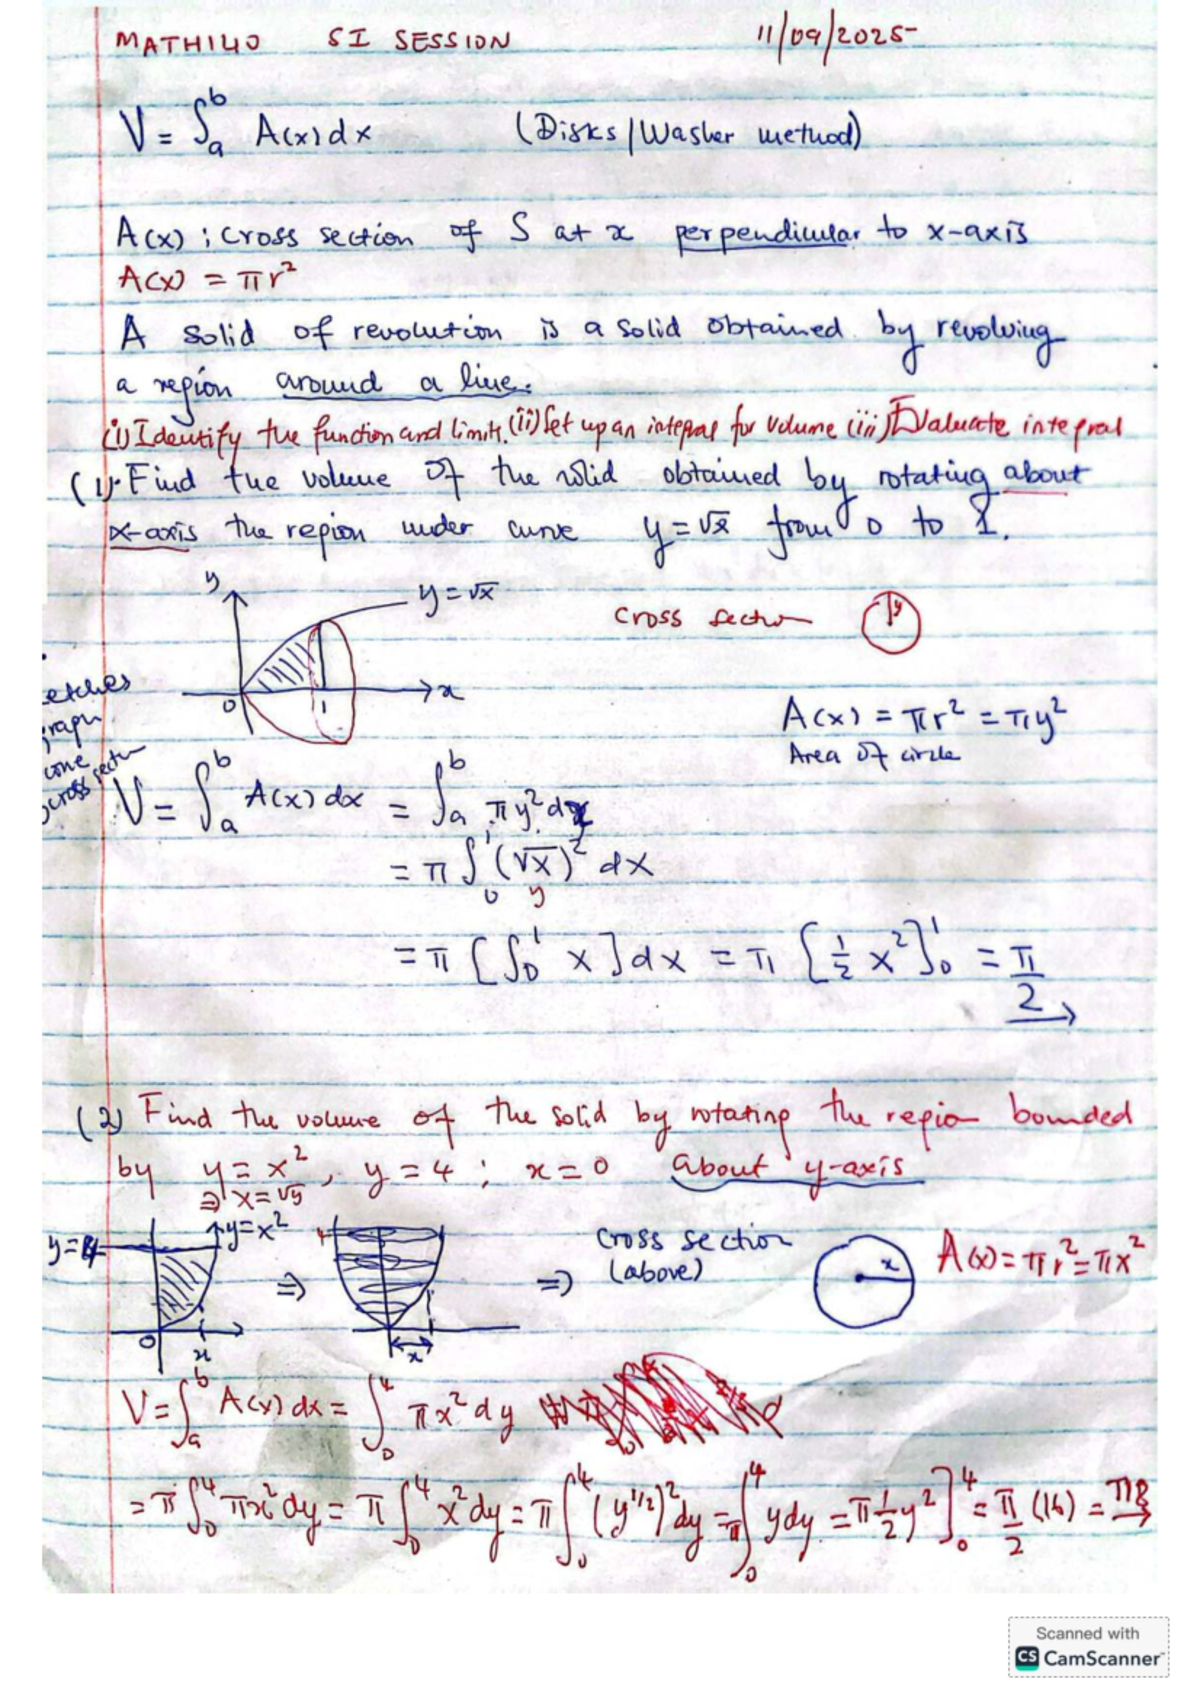 MATH140 SI SESSION 11/09/2025
V = ∫ₐᵇ A(x) dx (Disks/Washer method)
A(x) : Cross section of S at x perpendicular to x-axis
A(x) = πr²
A solid of revolution is a solid obtained by revolving
a region around a line.
(i) Identify the function and limits. (ii) Set up an integral for volume (iii) Evaluate integral
(1). Find the volume of the solid obtained by rotating about
x-axis the region under curve y = √x from 0 to 1.
y
y = √x
Cross section
y
0 1 x
etches
raph
cone
cross section
A(x) = πr² = πy²
Area of circle
V = ∫ₐᵇ A(x) dx = ∫ₐᵇ πy² dx
= π ∫₀¹ (√x)² dx
y
= π [∫₀¹ x] dx = π [½ x²]₀¹ = π/2
(2) Find the volume of the solid by rotating the region bounded
by y = x², y = 4 ; x = 0 about y-axis
⇒ x = √y
y=4
y=x²
0 x
⇒
4
x
⇒
Cross section
(above)
x
A(x) = πr² = πx²
V = ∫ₐᵇ A(x) dx = ∫₀⁴ πx² dy
= π ∫₀⁴ πx² dy = π ∫₀⁴ x² dy = π ∫₀⁴ (y^1/2)² dy = π ∫₀⁴ y dy = π ½ y² ]₀⁴ = π/2 (16) = π8
Scanned with
CS CamScanner